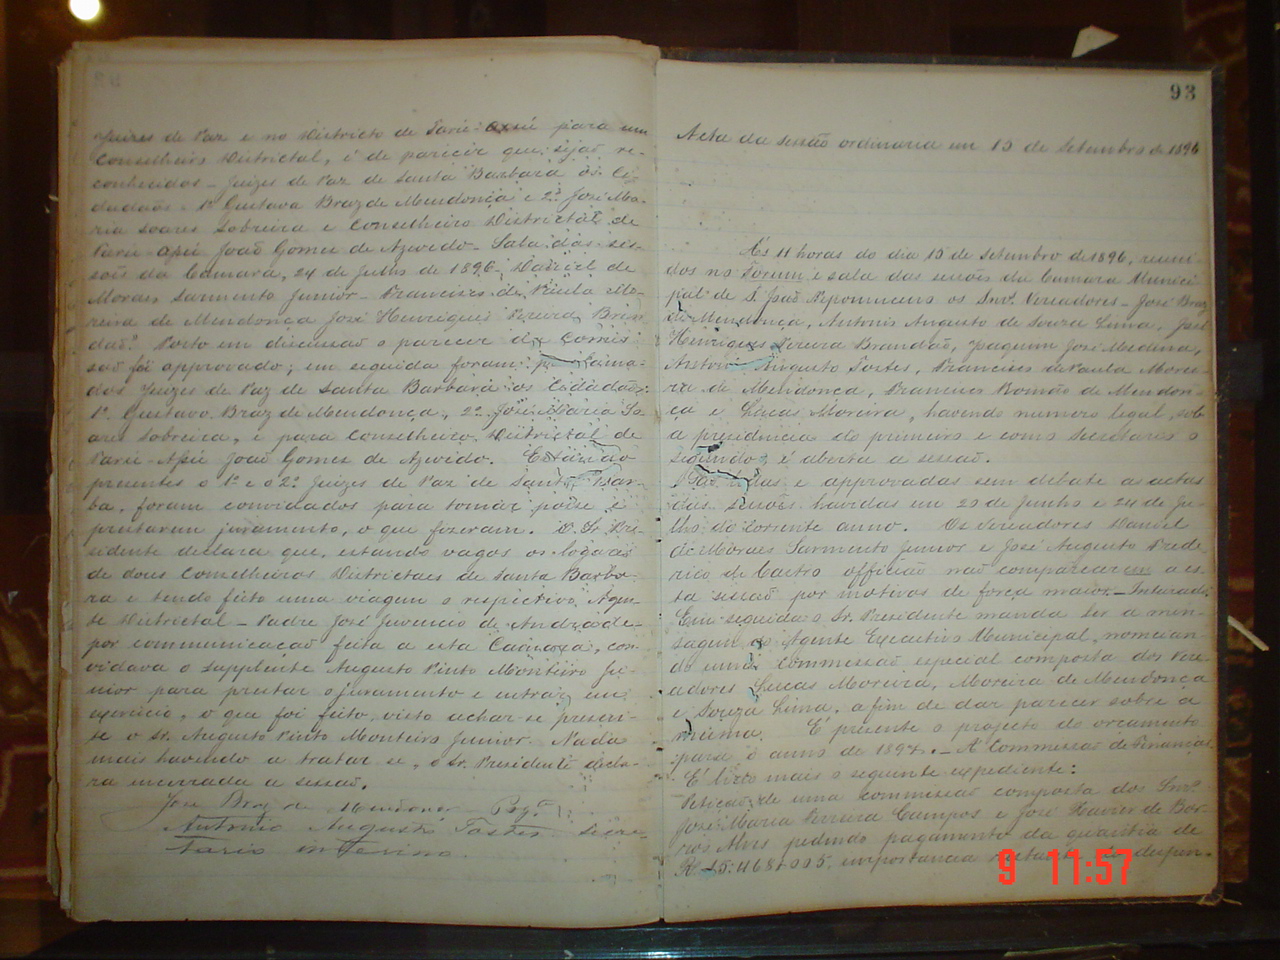 Juizes de Paz e no Districto de Parú-Assú para um
Conselheiro Districtal, é de parecer que sejaõ re-
conhecidos - Juizes de Paz de Santa Barbara os Ci-
dadaõs - 1º Gustavo Braz de Mendonça e 2º José Ma-
ria Soares Sobreira e Conselheiro Districtal de
João Gomes de Azevedo - Sala das ses-
soẽs da Camara, 24 de Julho de 1896 - Daniel de
Moraes Sarmento Junior - Francisco de Paula Mo-
reira de Mendonça José Henriques Pereira Bran-
daõ. Posto em discussaõ o parecer da Comis-
saõ foi approvado; em seguida foram
dos Juizes de Paz de Santa Barbara os Cidadaõs:
1º Gustavo Braz de Mendonça, 2º José Maria So-
ares Sobreira, e para Conselheiro Districtal de
João Gomes de Azevedo. Estando
presentes o 1º e o 2º Juizes de Paz de Santa Barba-
ba, foram convidados para tomar posse e
prestarem juramento, o que fizeram. O Sr Pre-
sidente declara que, estando vagos os logares
de dous Conselheiros Districtaes de Santa Barba-
ra e tendo feito uma viagem o respectivo Agen-
te Districtal - Padre José Juvencio de Andrade-
por communicaçaõ feita a esta Camara, con-
vidava o supplente Augusto Pinto Monteiro Ju-
nior para prestar o juramento e entrar em
exercicio, o que foi feito, visto achar-se presen-
te o Sr. Augusto Pinto Monteiro Junior. Nada
mais havendo a tratar-se, o Sr. Presidente decla-
ra encerrada a sessaõ.
José Braz de Mendonça
Antonio Augusto Tostes Secre-
tario interino
93
Acta da sessaõ ordinaria em 15 de Setembro de 1896
Ás 11 horas do dia 15 de Setembro de 1896, reuni-
dos no Forum e sala das sessões da Camara Munici-
pal de S. João Nepomuceno os Snrs. Vereadores - José Braz
de Mendonça, Antonio Augusto de Souza Lima, José
Henriques Pereira Brandaõ, Joaquim José Medina,
Antonio Augusto Tostes, Francisco de Paula Morei-
ra de Mendonça, Francisco Romaõ de Mendon-
ça e Lucas Moreira, havendo numero legal, sob
a presidencia do primeiro e como Secretario o
segundo, é aberta a sessaõ.
Saõ lidas e approvadas sem debate as actas
das sessões havidas em 20 de Junho e 24 de Ju-
lho do corrente anno. Os Vereadores Daniel
de Moraes Sarmento Junior e José Augusto Frede-
rico de Castro officiaõ naõ comparecerem a es-
ta sessaõ por motivos de força maior - Inteirada
Em seguida o Sr. Presidente manda ler a men-
sagem do Agente Executivo Municipal, nomean-
do uma commissaõ especial composta dos Vere-
adores Lucas Moreira, Moreira de Mendonça
e Souza Lima, a fim de dar parecer sobre a
mesma. É presente o projecto do orçamento
para o anno de 1897. - A Commissaõ de Finanças
É lido mais o seguinte expediente:
Petiçaõ de uma commissaõ composta dos Snrs.
José Maria Ferreira Campos e José Xavier de Bor-
ros Alves pedindo pagamento da quantia de
importancia
9 11:57